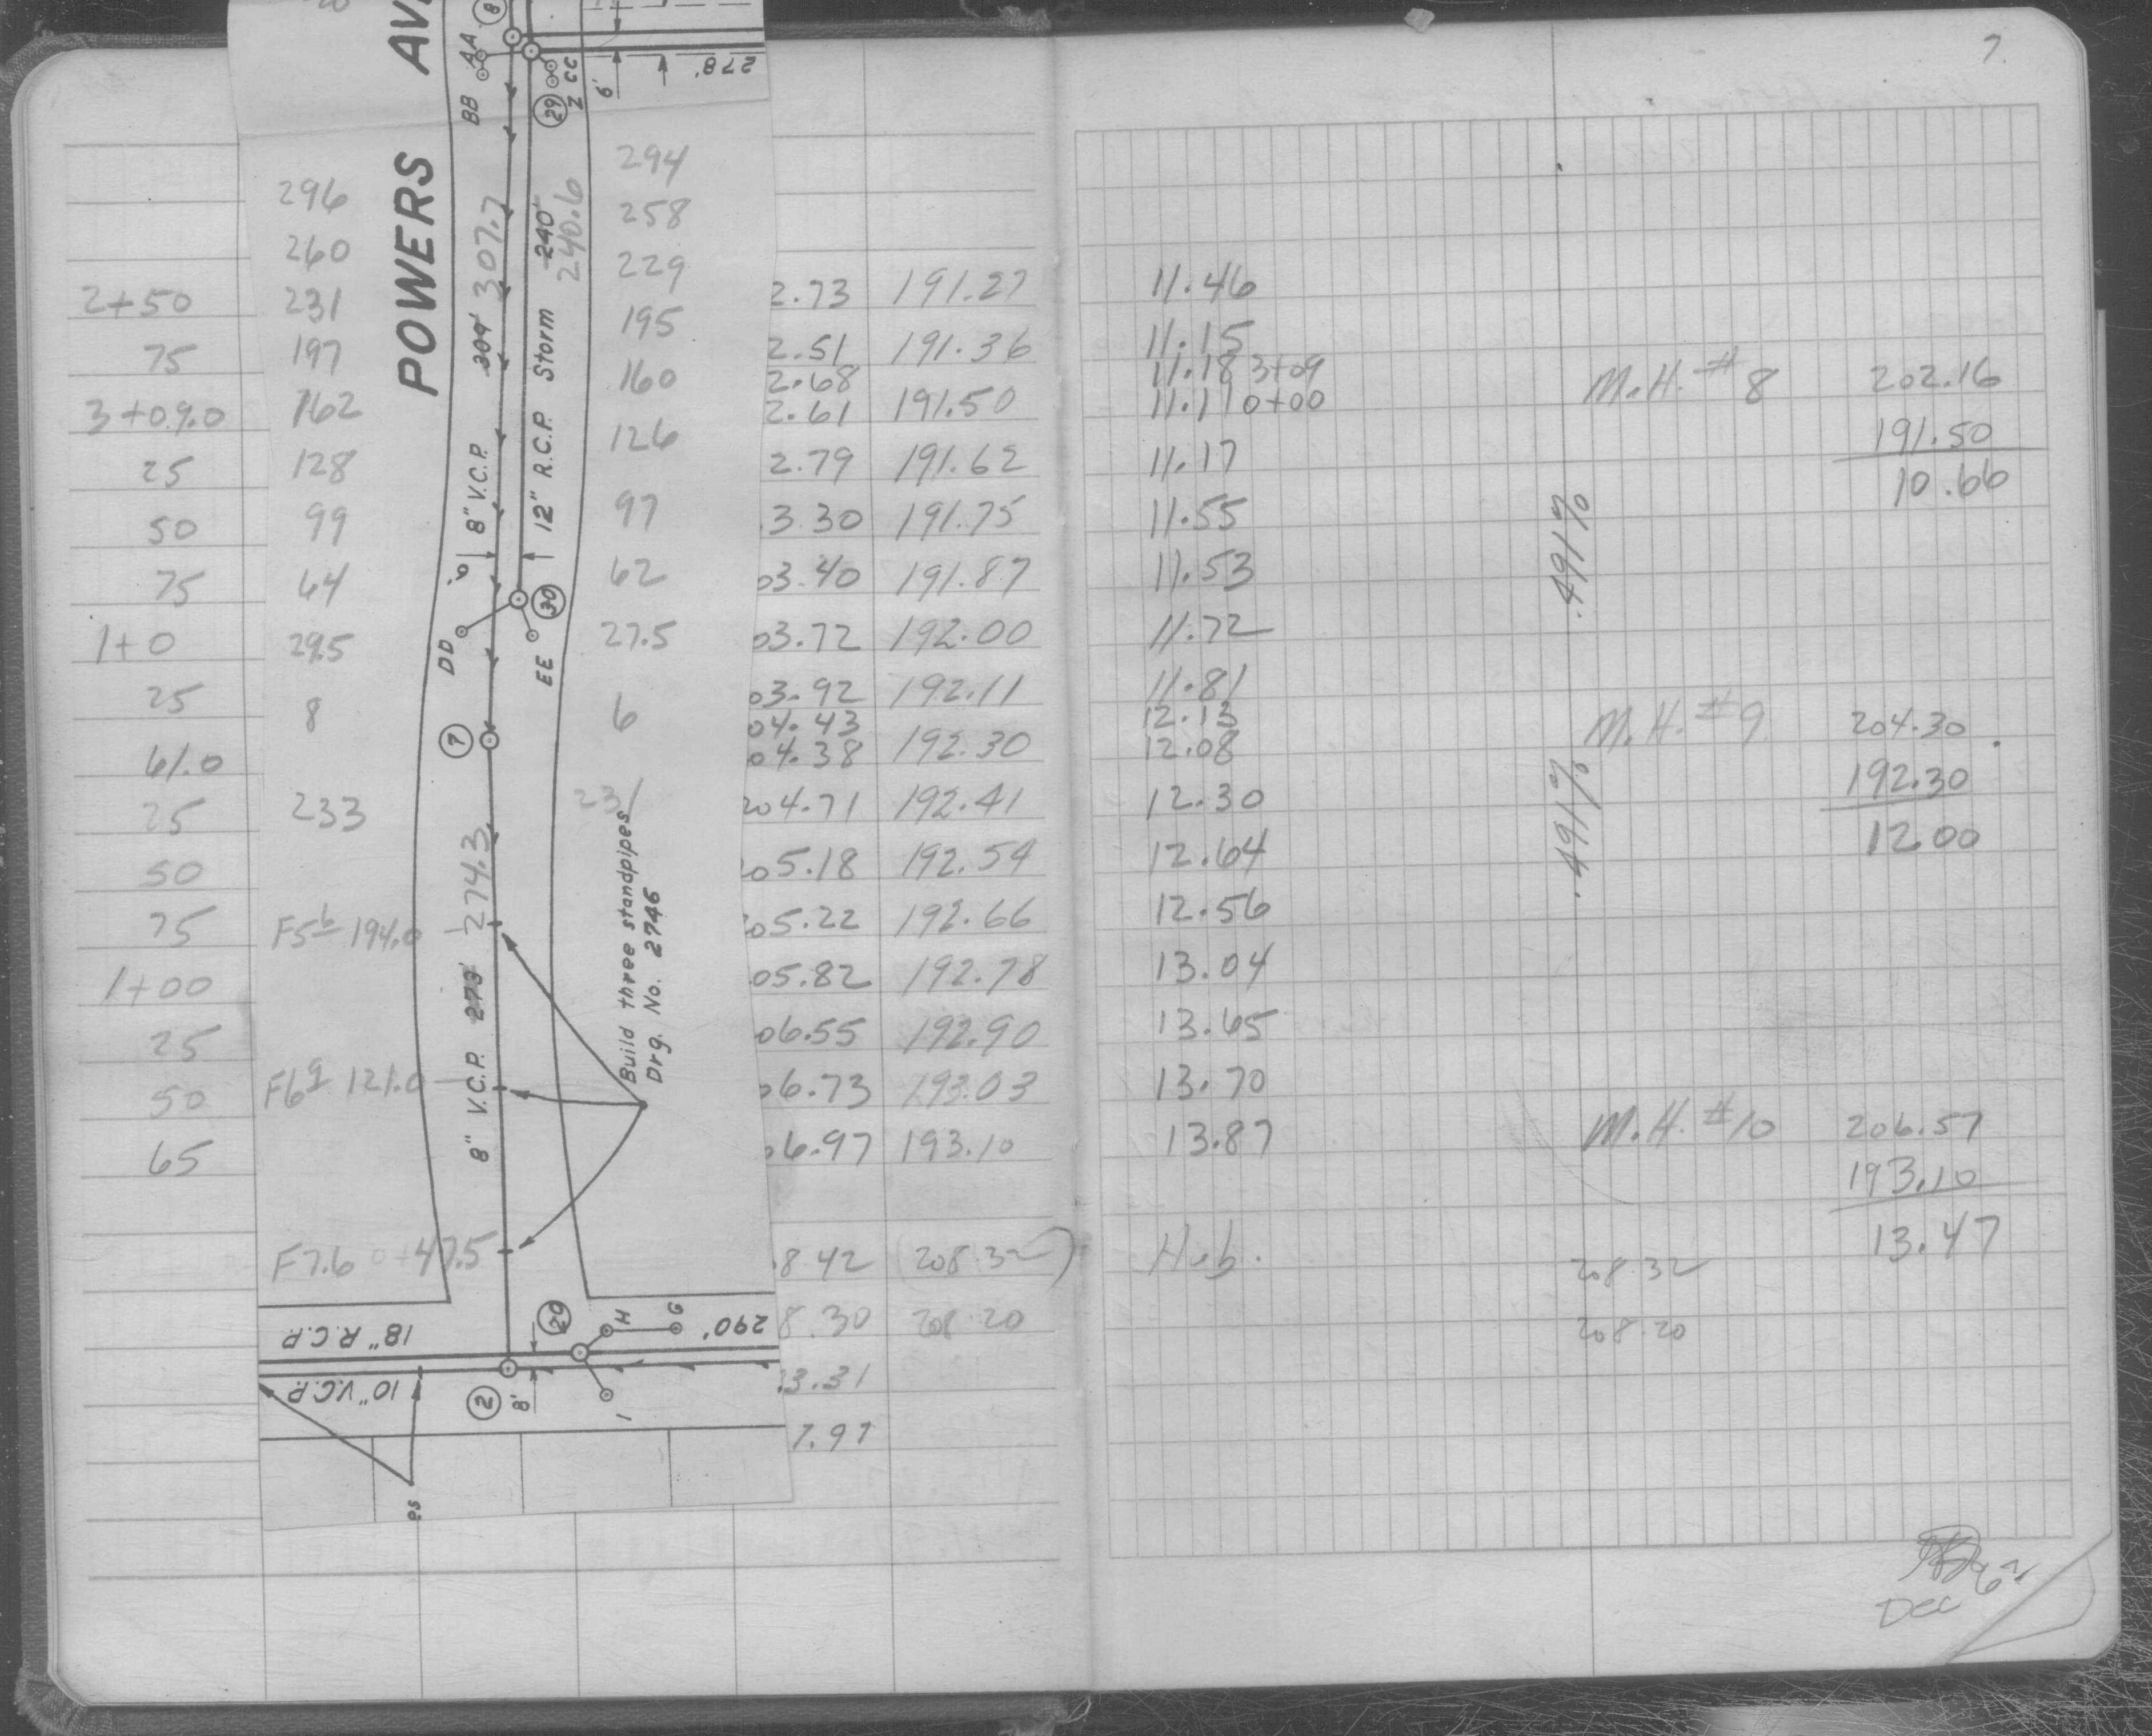 7.
POWERS AV
BB
AA
8
29
Z CC
6'
278'
296
294
260
258
2+50
231
229
2.73 191.27 11.46
75
197
195
2.51 191.36 11.15
2.68 11.18 3+09
3+09.0
162
160
2.61 191.50 11.11 0+00
M.H. #8 202.16
191.50
10.66
25
128
126
2.79 191.62 11.17
50
99
97
3.30 191.75 11.55
75
64
62
03.40 191.87 11.53
.491%
1+0
29.5
27.5
03.72 192.00 11.72
25
8
6
03.92 192.11 11.81
04.43 12.13
61.0
04.38 192.30 12.08
M.H. #9 204.30
192.30
12.00
25
233
231
204.71 192.41 12.30
.491%
50
05.18 192.54 12.64
75
F5 194.0
05.22 192.66 12.56
1+00
05.82 192.78 13.04
25
06.55 192.90 13.65
50
F6 121.0
06.73 193.03 13.70
65
6.97 193.10 13.87
M.H. #10 206.57
193.10
13.47
F7.6 0+47.5
8.42 (208.32) Hub.
208.32
8.30 208.20
208.20
3.31
7.97
8" V.C.P. 304' 307.7
12" R.C.P. Storm 240' 240.6
6'
DD
EE
30
7
8" V.C.P. 273' 274.3
Build three standpipes
Drg. No. 2746
18" R.C.P.
10" V.C.P.
20
H
G
290'
2
8'
I
es
Dec